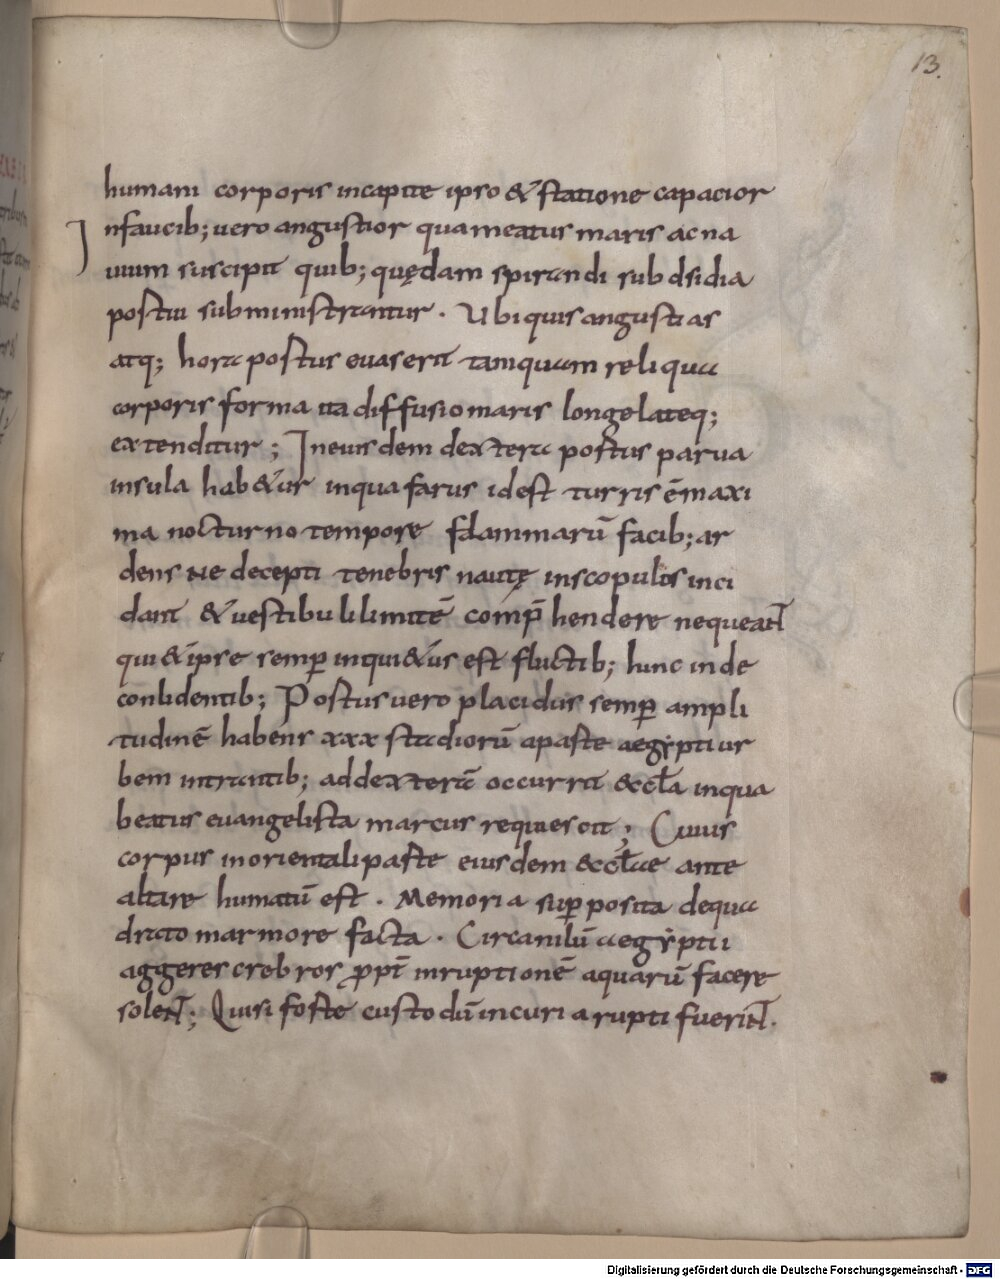 13.
humani corporis incapite ipso & statione capacior
Infaucib; vero angustior qua meatus maris ac na
uium suscipit quib; quędam spirandi subdsidia
postui subministrantur. Ubi quis angustias
atq; hora postus euaserit tamquam reliqua
corporis forma ita diffusio maris longe lateq;
extenditur; In eius dem dextera postus parua
insula hab&ur inqua farus idest turris ē maxi
ma nocturno tempore flammarū facib; ar
dens Ne decepti tenebris nautę inscopulos inci
dant & uestibuli limitē comp̄hendere nequeant
qui & ipse semp̄ inqui&us est fluctib; hinc inde
conlidentib; Postus vero placidus semp̄ ampli
tudinē habens xxx stadiorū apaste aegẏpti ur
bem intrantib; ad dexterā occurrit &ccl̄a inqua
beatus euangelista marcus requiescit; Cuius
corpus inorientali paste eiusdem &ccl̄ae ante
altare humatū est. Memoria sup̄posita de qua
drato marmore facta. Circa nilū aegẏptii
aggeres crebros ꝓpt̄ inruptionē aquarū facere
solent; Qui si foste custodū incuria rupti fuerint.
Digitalisierung gefördert durch die Deutsche Forschungsgemeinschaft - DFG